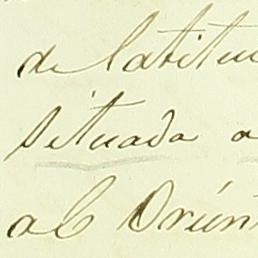 de latitu
situada a
al Orien